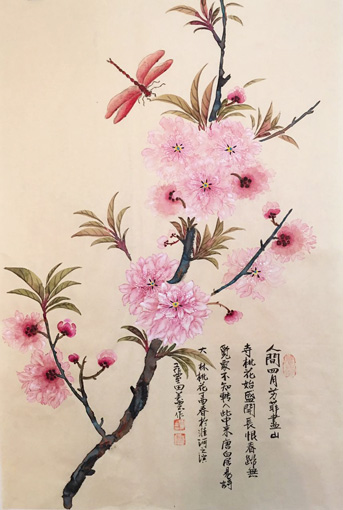 人間四月芳菲盡山
寺桃花始盛開長恨春歸無
覓處不知轉入此中來唐白居易詩
大林桃花春於淮河之濱
田作